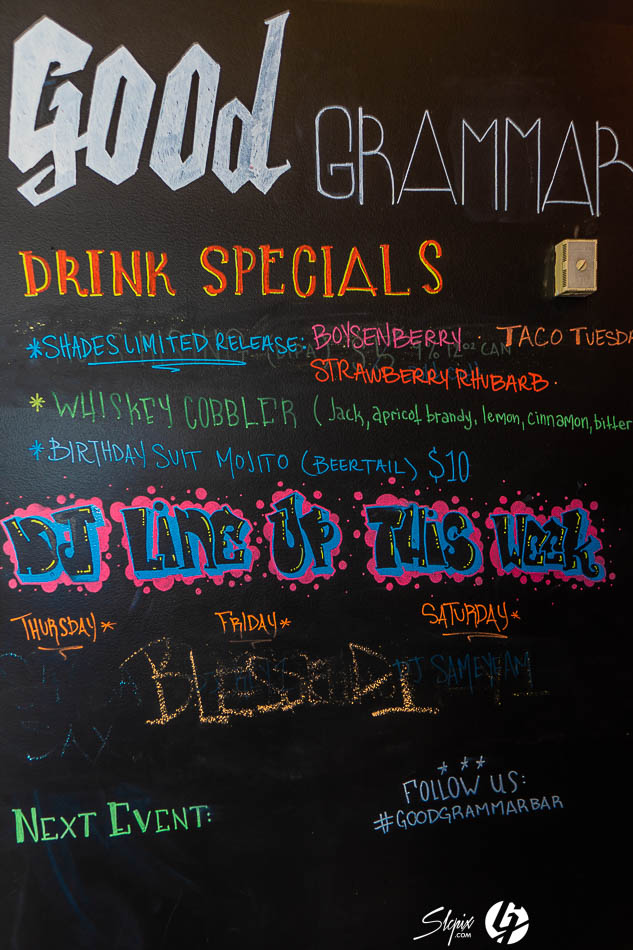 Good GRAMMAR
DRINK SPECIALS
*SHADES LIMITED RELEASE: BOYSENBERRY · TACO TUESDA
STRAWBERRY RHUBARB ·
*WHISKEY COBBLER (Jack, apricot brandy, lemon, cinnamon, bitter
*BIRTHDAY SUIT MOJITO (BEERTAIL) $10
DJ LINE UP THIS WEEK
THURSDAY* FRIDAY* SATURDAY*
DJ SAMEYEAM
* * *
FOLLOW US:
#GOODGRAMMARBAR
NEXT EVENT:
Slcpix
.COM